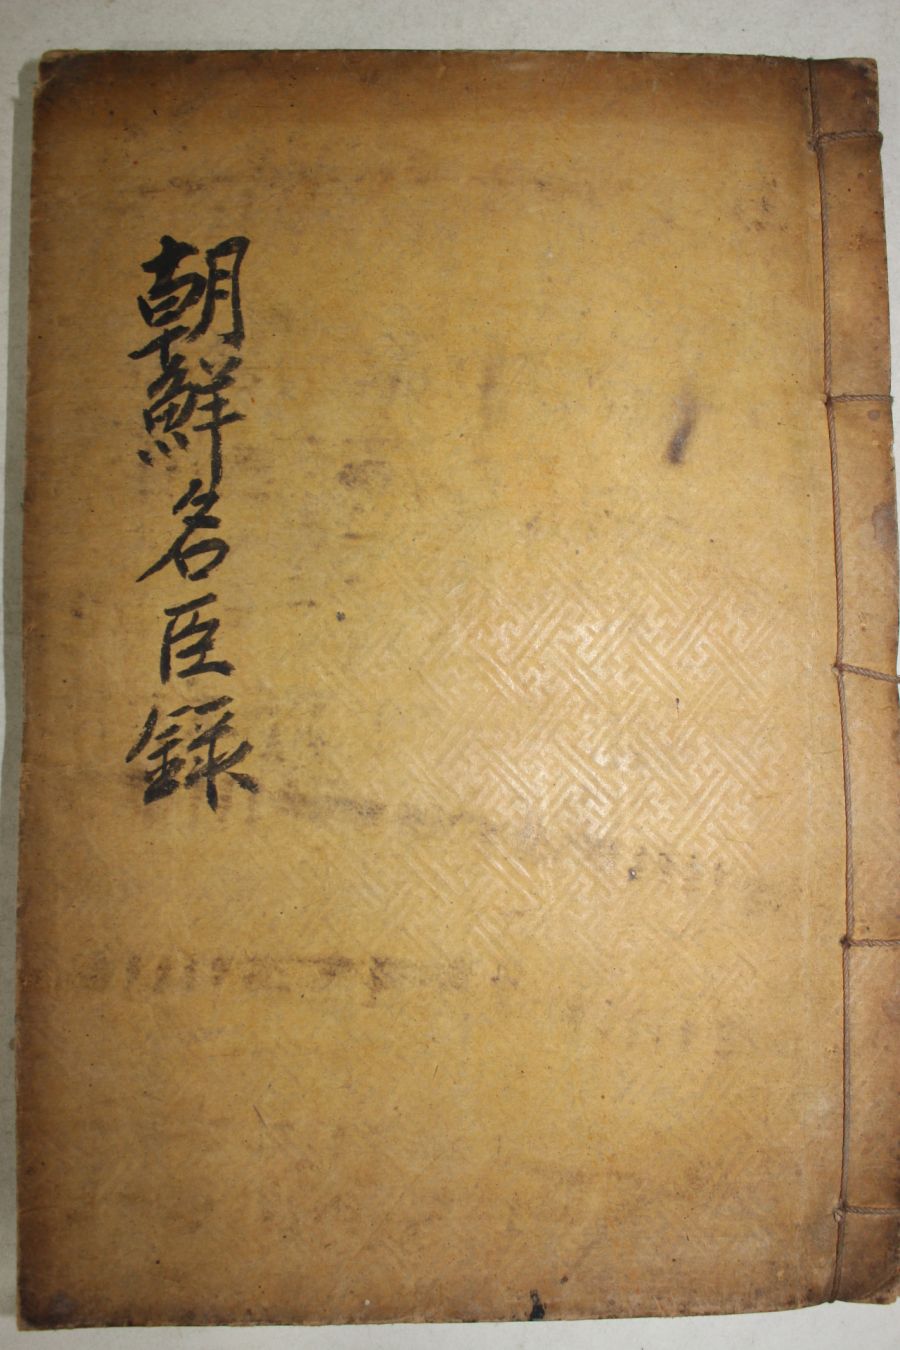 朝鮮名臣録